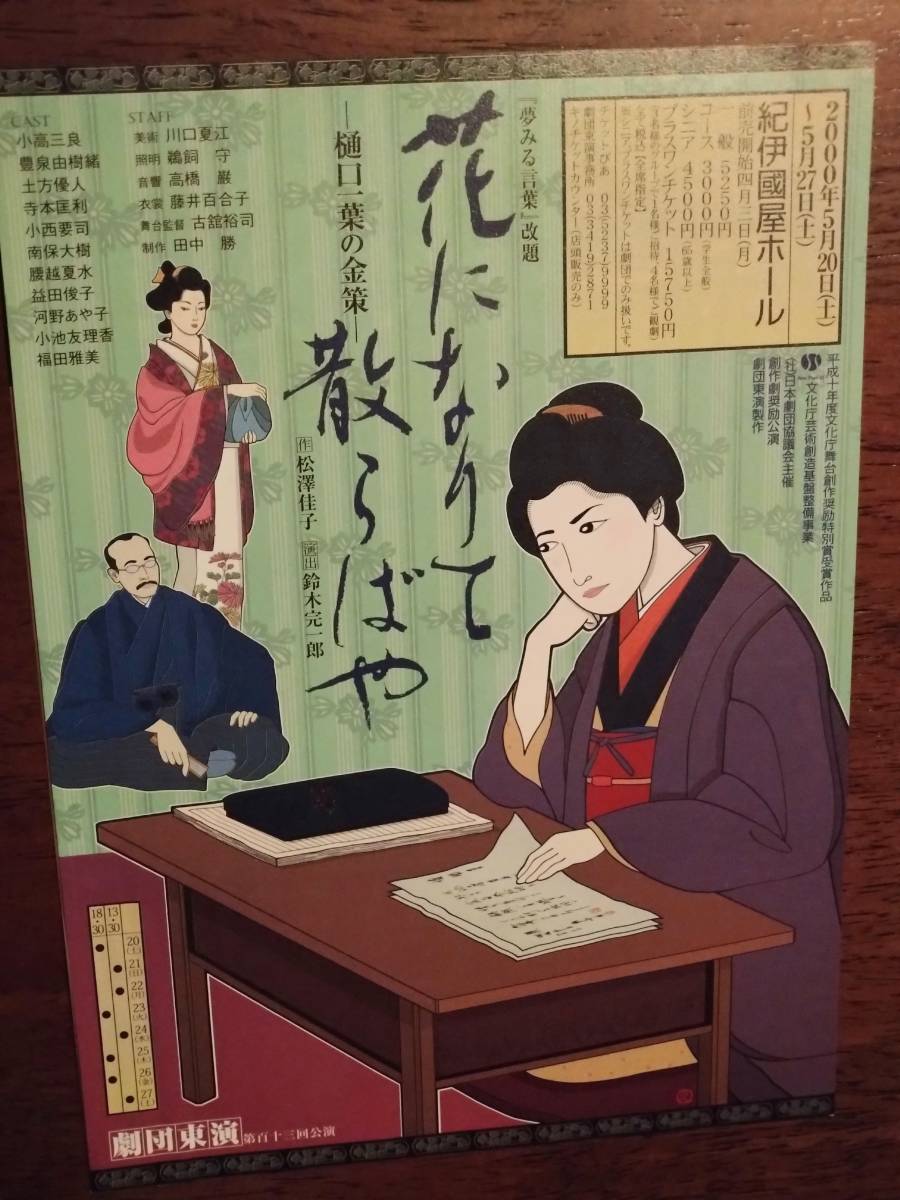 2000年5月20日(土)
〜5月27日(土)
紀伊國屋ホール
前売開始四月三日(月)
一般 5250円
コース 3000円(学生全般)
シニア 4500円(65歳以上)
プラスワンチケット 15750円
(3名様のグループで1名様ご招待、4名様でご観劇)
全て税込【全席指定】
※シニア、プラスワンチケットは劇団でのみ扱いです。
チケットぴあ 03(5237)9999
劇団東演事務所 03(3419)2871
キノチケットカウンター(店頭販売のみ)
平成十年度文化庁舞台創作奨励特別賞受賞作品
文化庁芸術創造基盤整備事業
(社)日本劇団協議会主催
創作劇奨励公演
劇団東演製作
『夢みる言葉』改題
花になりて
散らばや
―樋口一葉の金策―
作 松澤佳子
演出 鈴木完一郎
STAFF
美術 川口夏江
照明 鵜飼 守
音響 高橋 巖
衣裳 藤井百合子
舞台監督 古舘裕司
制作 田中 勝
CAST
小高三良
豊泉由樹緒
土方優人
寺本匡利
小西要司
南保大樹
腰越夏水
益田俊子
河野あや子
小池友理香
福田雅美
13・30
18・30
20(土)
21(日)
22(月)
23(火)
24(水)
25(木)
26(金)
27(土)
劇団東演 第百十三回公演